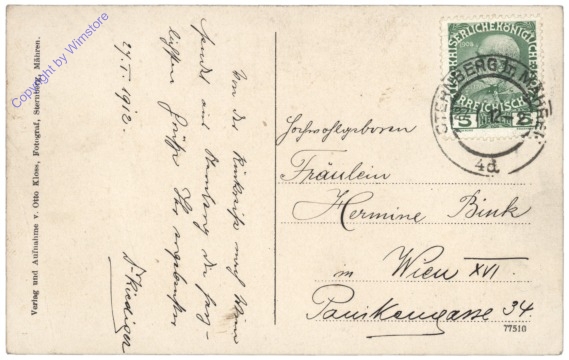 Copyright by Wimstore
Verlag und Aufnahme v. Otto Kloss, Fotograf, Sternberg, Mähren.
27. I. 1912.
Von der Rückreise nach Wien
sendet aus Sternberg die herz-
lichsten Grüße Ihr ergebenster
Dr Rudiger
KAISERLICHE KÖNIGLICHE
1908
ÖSTERREICHISCHE
5 5
STERNBERG in MÄHREN
12
4d
Hochwohlgeboren
Fräulein
Hermine Bink
in Wien XVI.
Panikengasse 34.
77510